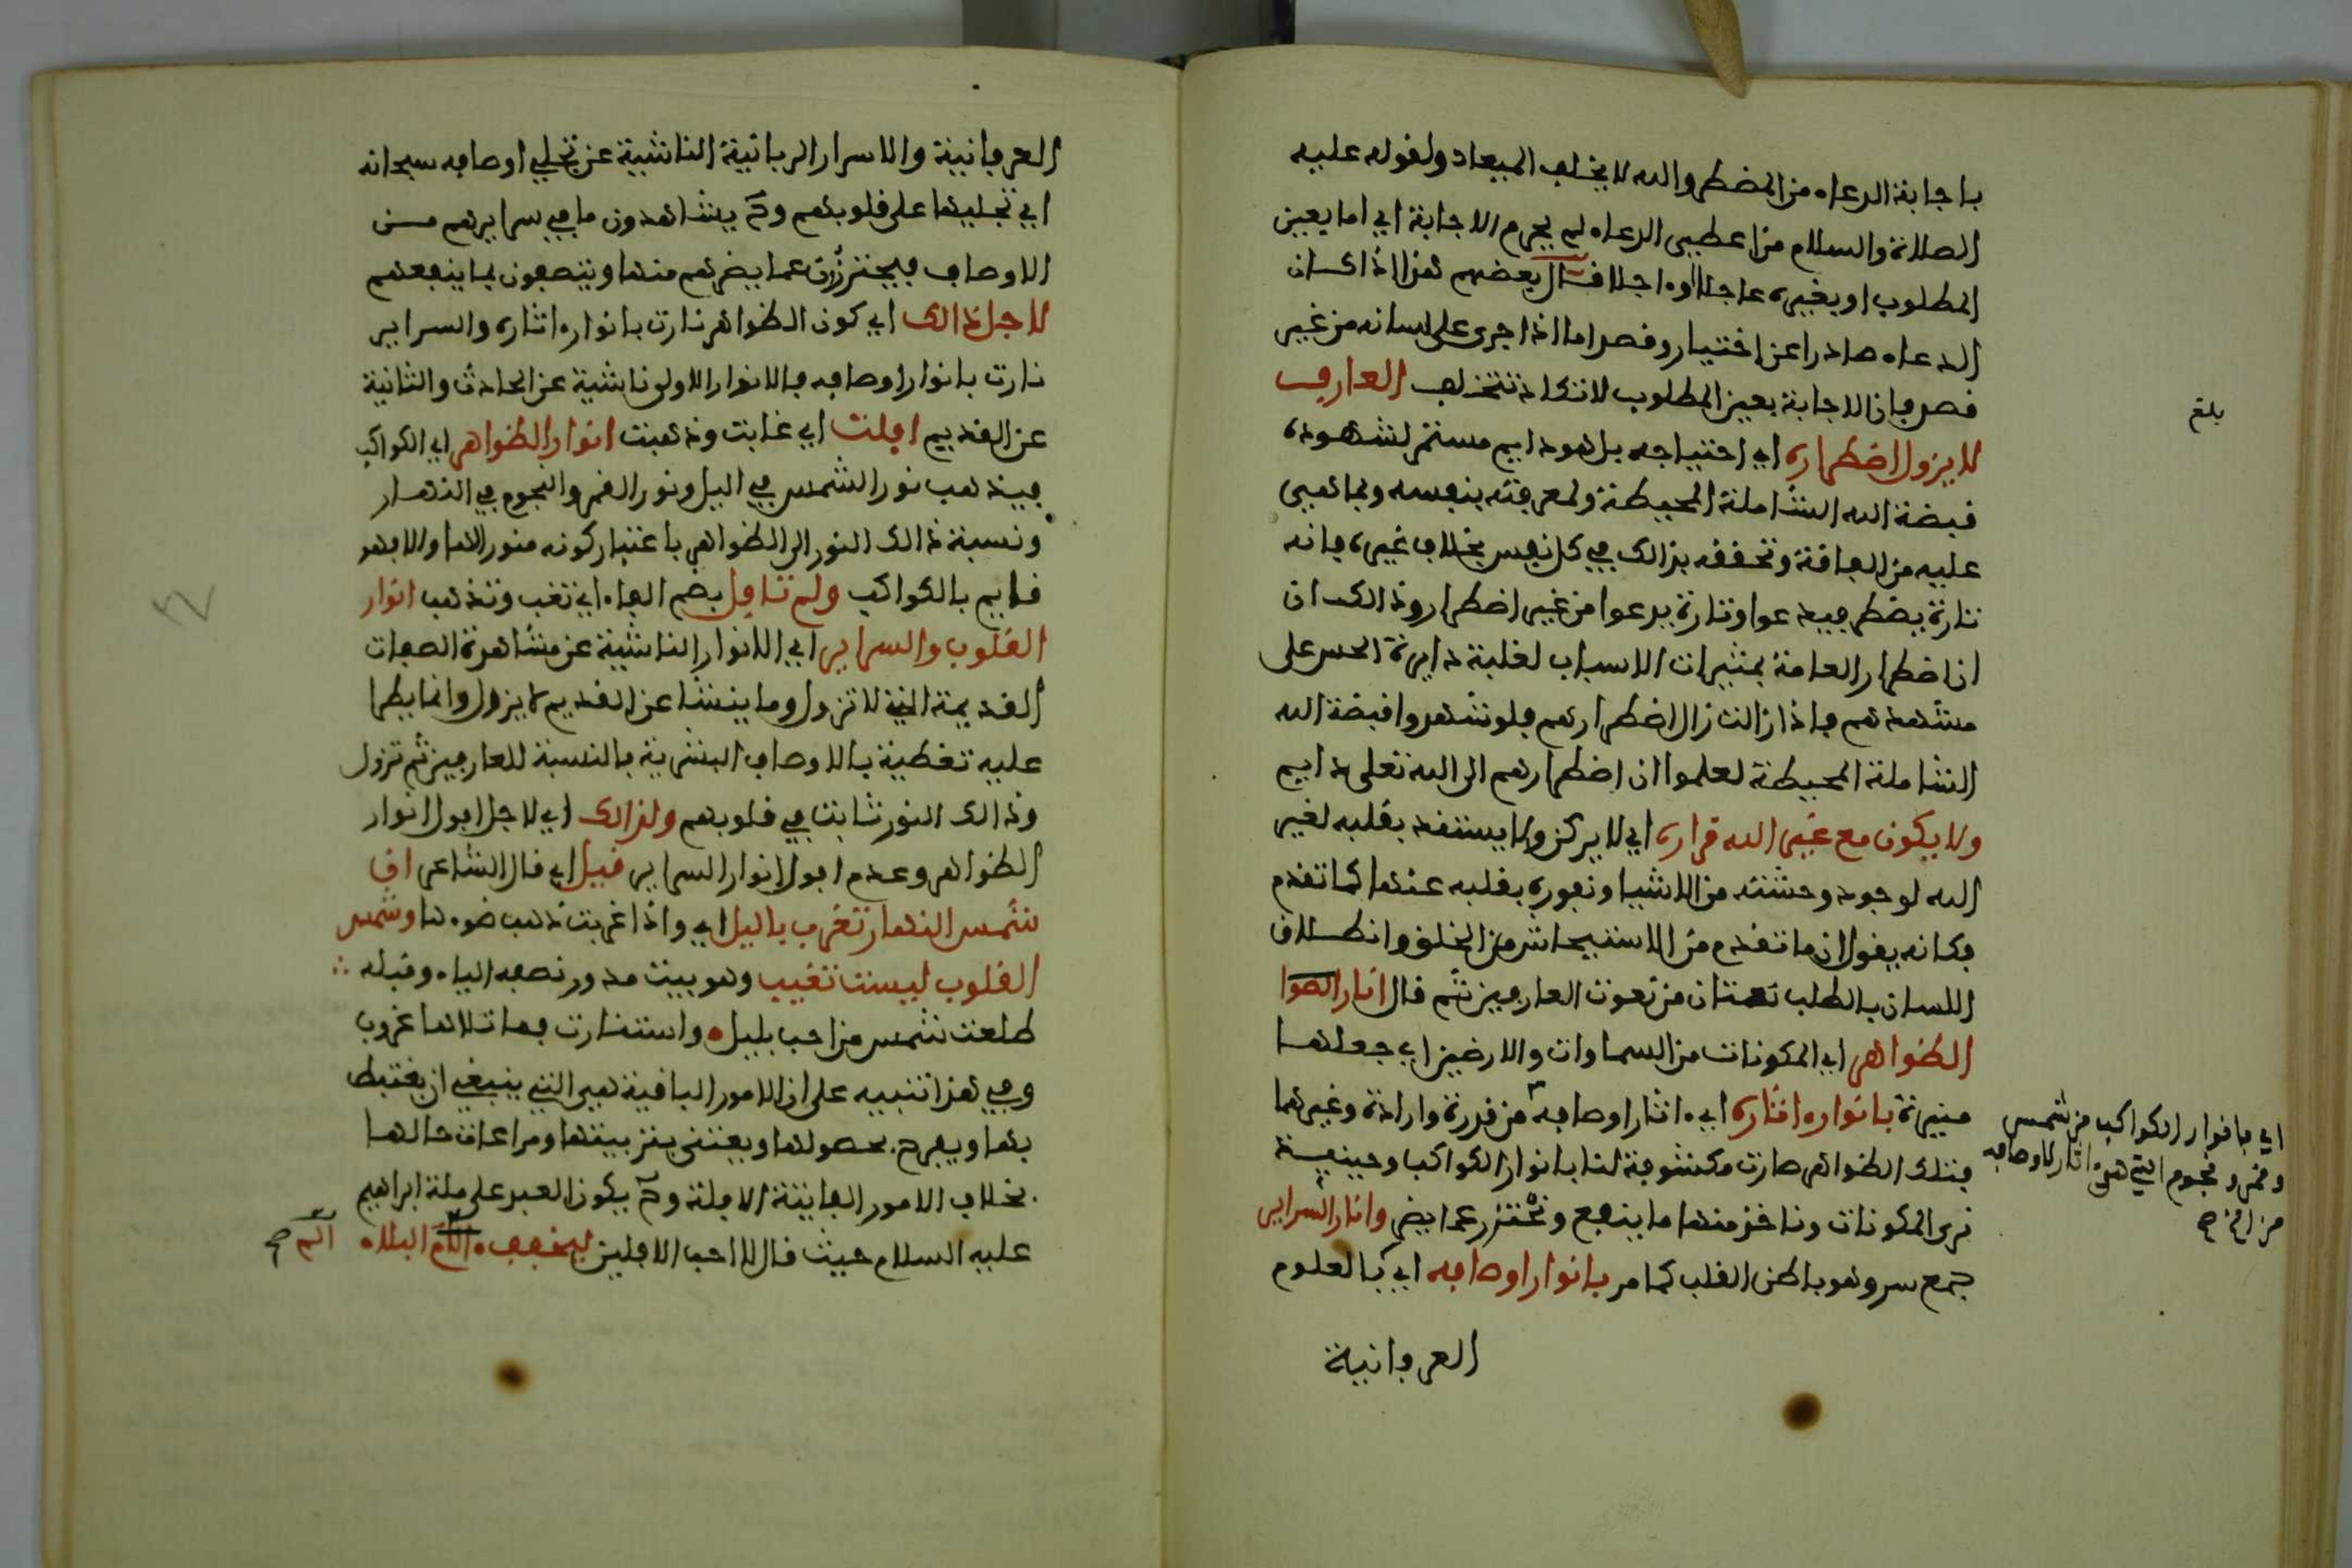 باجابة الدعاء من المضطر والله لا يخلف الميعاد ولقوله عليه
الصلاة والسلام من اعطيى الدعاء لم يحرم الاجابة اي اما بعين
المطلوب او بغيره عاجلا او ءاجلا قال بعضهم هذا اذا كان
الدعاء صادرا عن اختيار وقصد اما اذا جرى على لسانه من غير
قصد فان الاجابة بعين المطلوب لا تكاد تتخلف العارف
لا يزول اضطراره اي احتياجه بل هو دايم مستمر لشهوده
قبضة الله الشاملة المحيطة ولمعرفته بنفسه وبما هي
عليه من الفاقة وتحققه بذالك في كل نفس بخلاف غيره فانه
تارة يضطر فيدعوا وتارة يدعوا من غير اضطرار وذالك ان
اضطرار العامة بمثيرات الاسباب لغلبة دايرة الحس على
مشهدهم فاذا زالت زال اضطرارهم فلو شهدوا قبضة الله
الشاملة المحيطة لعلموا ان اضطرارهم الى الله تعلى دايم
ولا يكون مع غير الله قراره اي لا يركن ولا يستند بقلبه لغير
الله لوجود وحشته من الاشيا ونفوره بقلبه عنها كما تقدم
فكانه يقول ان ما تقدم من الاستيحاش من الخلق وانطلاق
اللسان بالطلب نعتان من نعوت العارفين ثم قال انار
الظواهر اي المكونات من السماوات والارضين اي جعلها
منيرة بانوار ءاثاره اي ءاثار اوصافه من قدرة وارادة وغيرهما
فتلك الظواهر صارت مكشوفة لنا بانوار الكواكب وحينيذ
نرى المكونات وناخذ منها ما ينفع ونحترز عما يضر وانار السراير
جمع سر وهو باطن القلب كما مر بانوار اوصافه اي بالعلوم
العرفانية
بلغ
اي بانوار الكواكب من شمس
وقمر ونجوم التي هي ءاثار لاوصافه
العرفانية والاسرار الربانية الناشية عن تجلي اوصافه سبحانه
اي تجليها على قلوبهم وح يشاهدون ما في سرايرهم من
الاوصاف فيحترزون عما يضرهم منها ويتصفون بما ينفعهم
لاجل ذالك اي كون الظواهر نارت بانوار ءاثاره والسراير
نارت بانوار اوصافه فالانوار الاولى ناشية عن الحادث والثانية
عن القديم افلت اي غابت وذهبت انوار الظواهر اي الكواكب
فيذهب نور الشمس في اليل ونور القمر والنجوم في النهار
ونسبة ذالك النور الى الظواهر باعتبار كونه منورا لها والا فهو
قايم بالكواكب ولم تافل بضم الفاء اي تغب وتذهب انوار
القلوب والسراير اي الانوار الناشية عن مشاهدة الصفات
القديمة التي لا تزول وما ينشا عن القديم لا يزول وانما يطرا
عليه تغطية بالاوصاف البشرية بالنسبة للعارفين ثم تزول
وذالك النور ثابت في قلوبهم ولذالك اي لاجل افول انوار
الظواهر وعدم افول انوار السراير قيل اي قال الشاعر ان
شمس النهار تغرب باليل اي واذا غربت ذهب ضوءها وشمس
القلوب ليست تغيب وهو بيت مدور نصفه الياء وقبله
طلعت شمس من احب بليل واستنارت فما تلاها غروب
وفي هذا تنبيه على ان الامور الباقية هي التي ينبغي ان يغتبط
بها ويفرح بحصولها ويعتنى بتربيتها ومراعات حالها
بخلاف الامور الفانية الافلة وح يكون العبد على ملة ابراهيم
عليه السلام حيث قال لا احب الافلين ليخفف الم البلاء الم صح